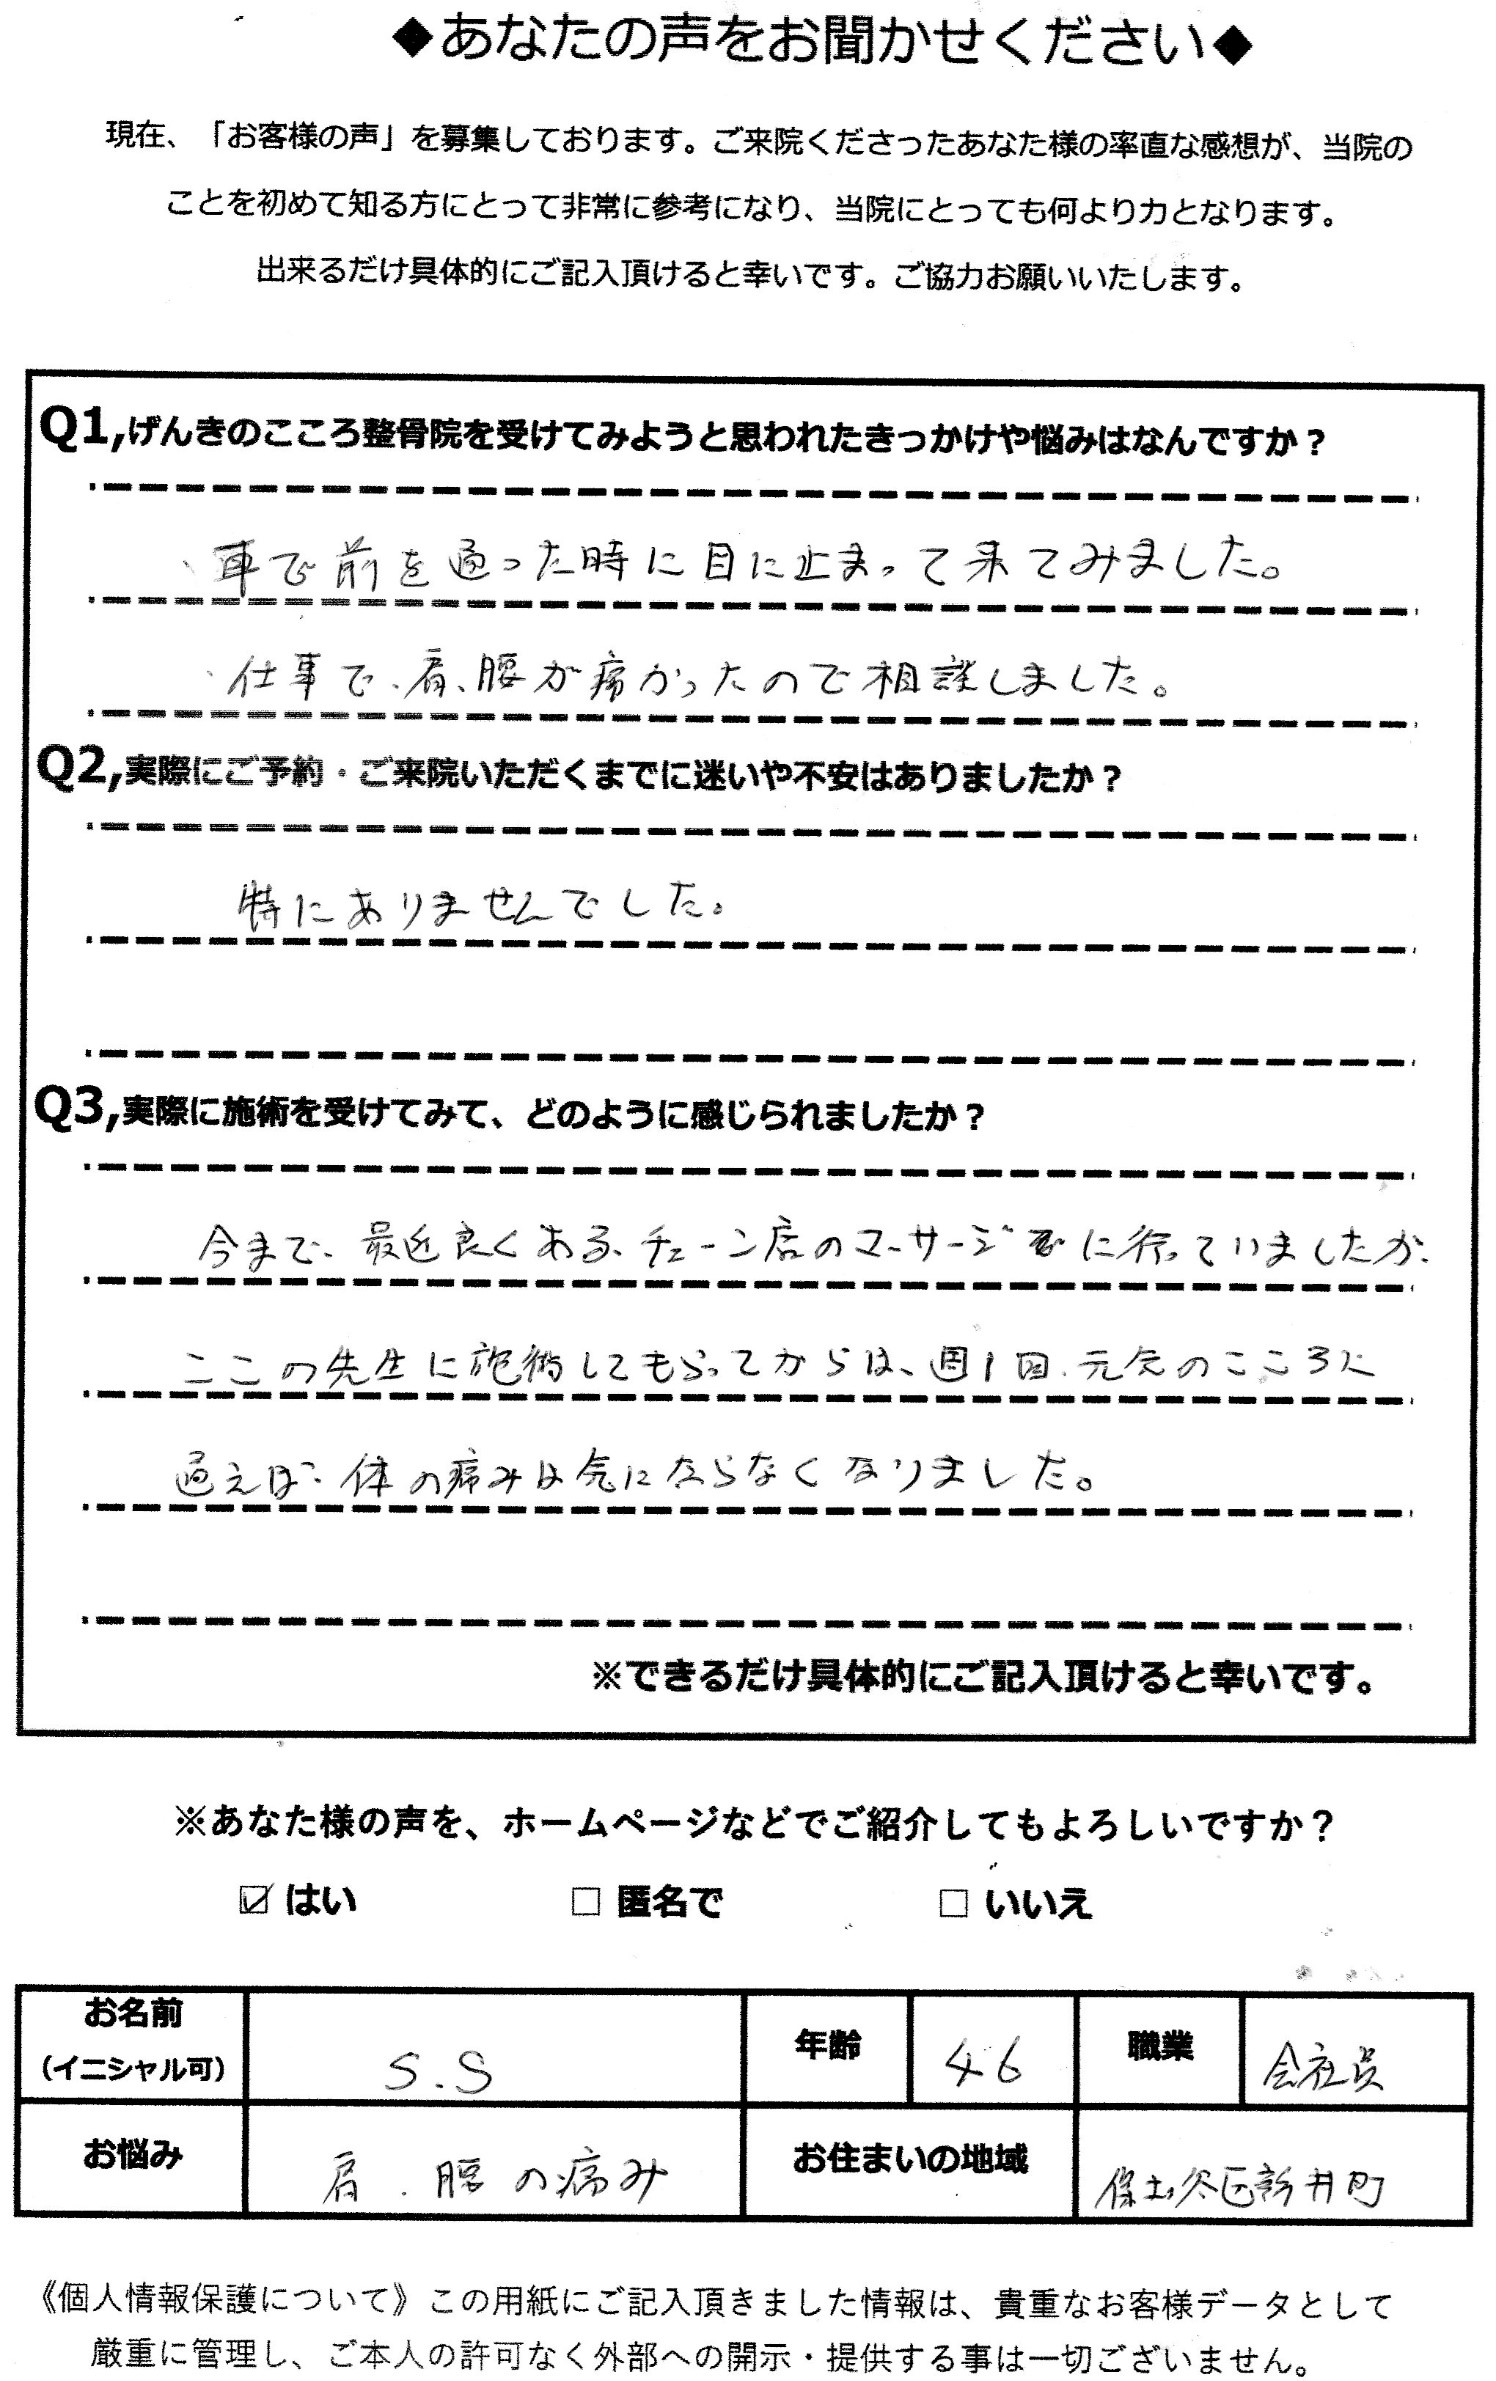 ◆あなたの声をお聞かせください◆
現在、「お客様の声」を募集しております。ご来院くださったあなた様の率直な感想が、当院の
ことを初めて知る方にとって非常に参考になり、当院にとっても何より力となります。
出来るだけ具体的にご記入頂けると幸いです。ご協力お願いいたします。
Q1,げんきのこころ整骨院を受けてみようと思われたきっかけや悩みはなんですか？
・車で前を通った時に目に止まって来てみました。
・仕事で、肩、腰が痛かったので相談しました。
Q2,実際にご予約・ご来院いただくまでに迷いや不安はありましたか？
特にありませんでした。
Q3,実際に施術を受けてみて、どのように感じられましたか？
今まで、最近良くある、チェーン店のマッサージ に行っていましたが、
ここの先生に施術してもらってからは、週1回、元気のこころに
通えば、体の痛みは気にならなくなりました。
※できるだけ具体的にご記入頂けると幸いです。
※あなた様の声を、ホームページなどでご紹介してもよろしいですか？
☑ はい □ 匿名で □ いいえ
お名前 (イニシャル可) S.S 年齢 46 職業 会社員
お悩み 肩、腰の痛み お住まいの地域 保土ヶ谷区新井町
《個人情報保護について》この用紙にご記入頂きました情報は、貴重なお客様データとして
厳重に管理し、ご本人の許可なく外部への開示・提供する事は一切ございません。